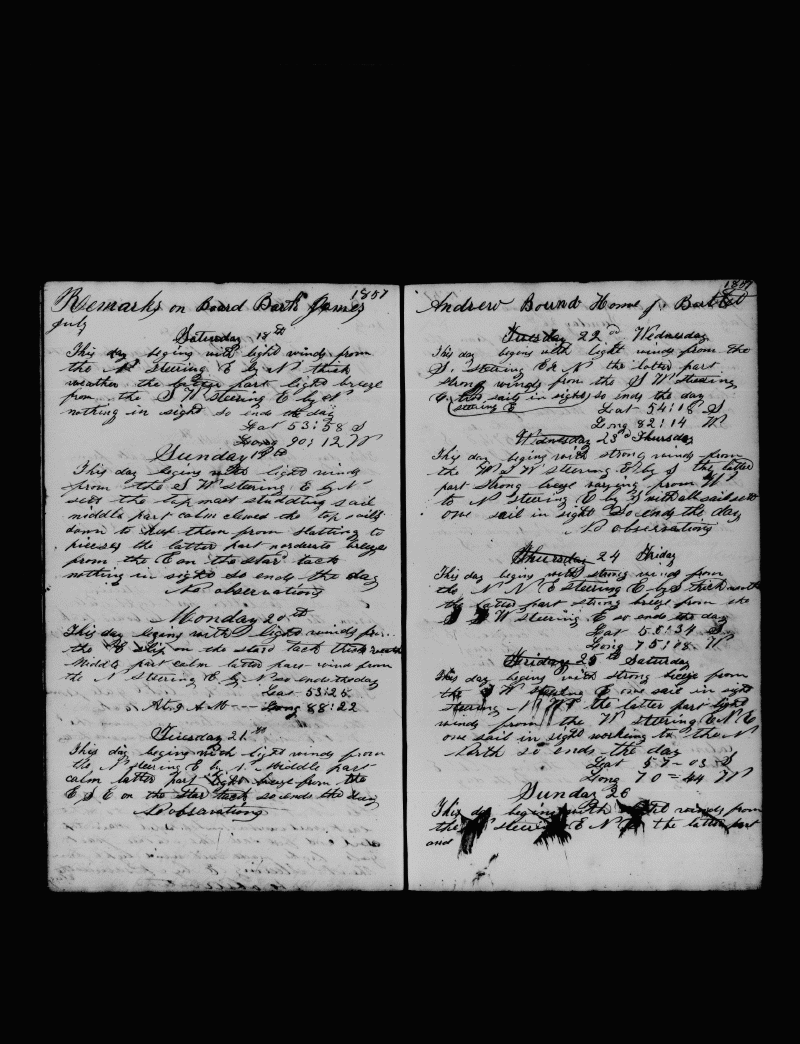 Remarks on Board Bark James 1857
July
Saturday 18th
This day begins with light winds from
the N steering E by N thick
weather the latter part light breeze
from the S W steering E by N
nothing in sight so ends the day
Lat 53:58 S
Long 90:12 W
Sunday 19th
This day begins with light winds
from the S W steering E by N
set the top mast studding sail
middle part calm clewed the top sails
down to keep them from slatting to
pieces the latter part breeze
from the E on the star tack
nothing in sight so ends the day
No observations
Monday 20th
This day begins with light winds from
the E Ship on the stard tack thick
Middle part calm latter part wind from
the N steering E by N so ends the day
Lat 53:25
At 9 A M -- Long 88:22
Tuesday 21st
This day begins with light winds from
the N steering E by N Middle part
calm latter part light breeze from the
E S E on the star tack so ends the day
No obsarations
Andrew Bound Home 1857
Tuesday 22nd Wednesday
This day begins with light winds from the
S. steering E N the latter part
strong winds from the S W steering
E two sails in sight so ends the day
steering E
Lat 54:18 S
Long 82:14 W
Wednesday 23d Thursday
This day begins with strong winds from
the W S W steering E by S the latter
part strong breeze varying from W
to N steering E by S with all sail set
one sail in sight So ends the day
No observations
Thursday 24 Friday
This day begins with strong winds from
the N N E steering E by S thick
the latter part strong breeze from the
S W steering E so ends the day
Lat 56:34 S
Long 75:18 W
Friday 25th Saturday
This day begins with strong breeze from
the S W steering E one sail in sight
steering the latter part light
winds from the W steering E N E
one sail in sight working to the N
North so ends the day
Lat 57-03 S
Long 70=44 W
Sunday 26
This day begins with winds from
the steering E N the latter part
and